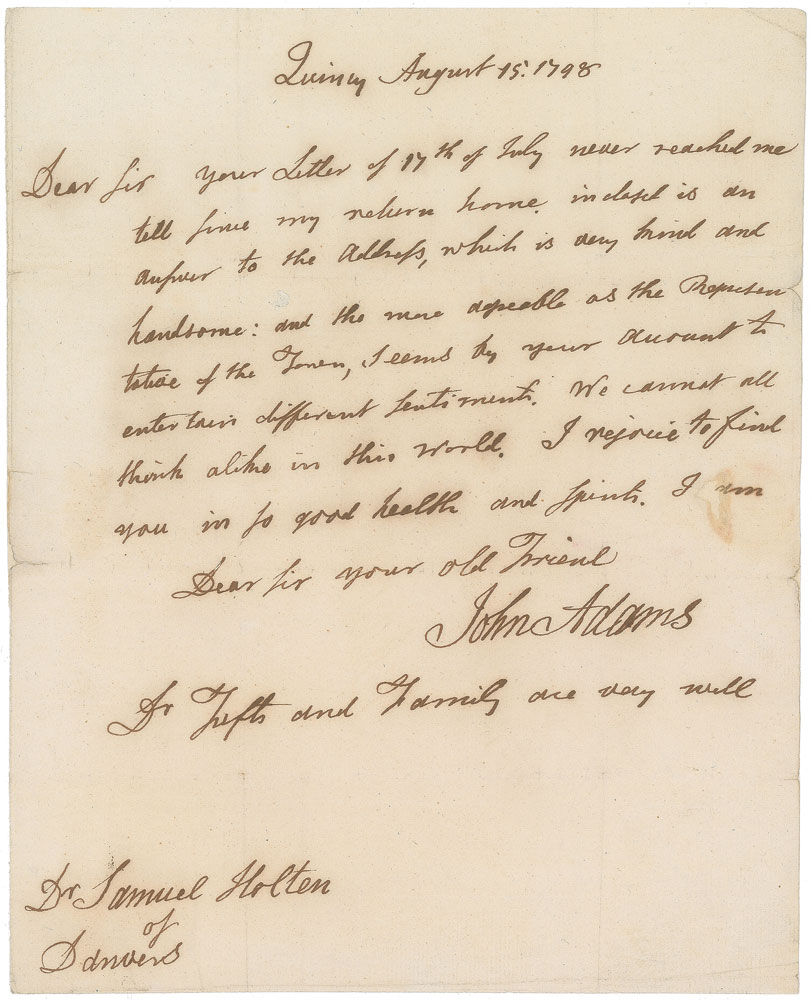 Quincy August 15. 1798
Dear Sir your Letter of 17th of July never reached me
till since my return home. inclosed is an
answer to the Address, which is very kind and
handsome: and the more agreable as the Represen
tative of the Town, seems by your account to
entertain different sentiments. We cannot all
think alike in this world. I rejoice to find
you in so good health and spirits. I am
Dear Sir your old Friend
John Adams
Dr Tufts and Family are very well
Dr Samuel Holten
of
Danvers